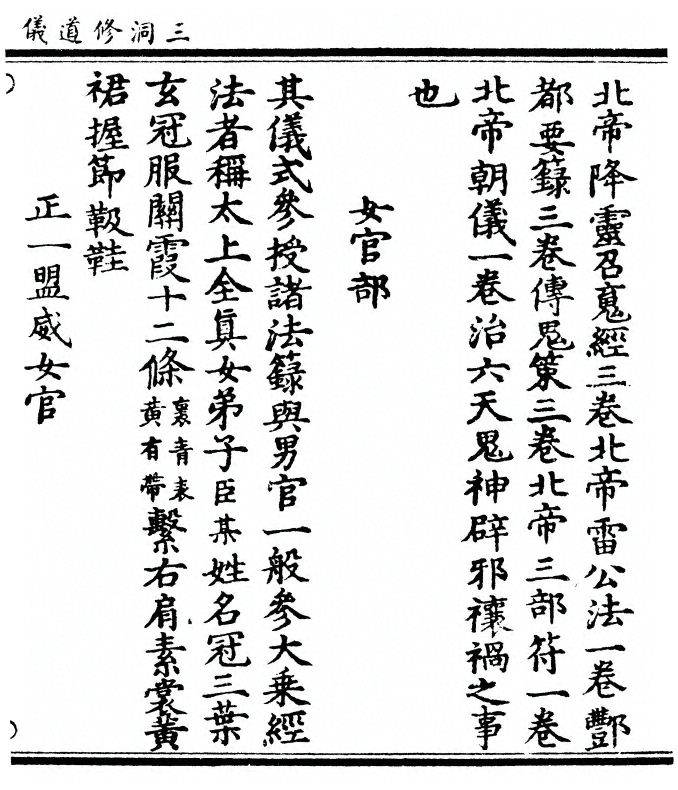 三洞修道儀
北帝降靈召䰠經三卷北帝雷公法一卷酆
都要籙三卷傳鬼策三卷北帝三部符一卷
北帝朝儀一卷治六天鬼神辟邪禳禍之事
也
女官部
其儀式參授諸法籙與男官一般參大乗經
法者稱太上全眞女弟子臣某姓名冠三葉
玄冠服關霞十二條裏青表黃有帶繫右肩素裳黃
裙握節靸鞋
正一盟威女官